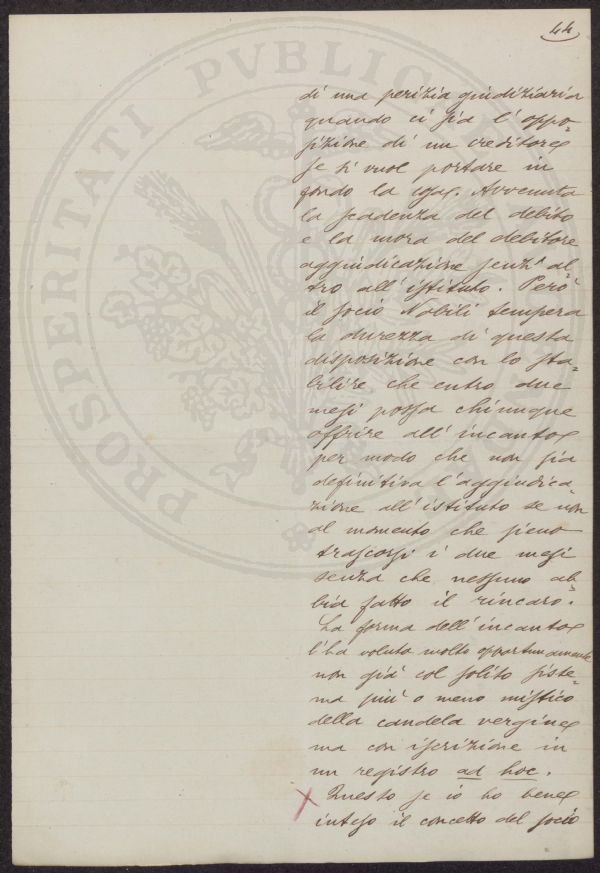 44
di una perizia giudiziaria
quando ci sia l'oppo-
sizione di un creditore
se si vuol portare in
fondo la cosa. Avvenuta
la scadenza del debito
e la mora del debitore
aggiudicazione senz'al-
tro all'istituto. Però
il socio Nobili tempera
la durezza di questa
disposizione con lo sta-
bilire che entro due
mesi possa chiunque
offrire all'incanto
per modo che non sia
definitiva l'aggiudica-
zione all'istituto se non
al momento che sieno
trascorsi i due mesi
senza che nessuno ab-
bia fatto il rincaro.
La forma dell'incanto
l'ha voluta molto opportunamente
non già col solito siste-
ma più o meno mistico
della candela vergine
ma con iscrizione in
un registro ad hoc.
Questo se io ho bene
inteso il concetto del socio
PROSPERITATI PVBLICAE